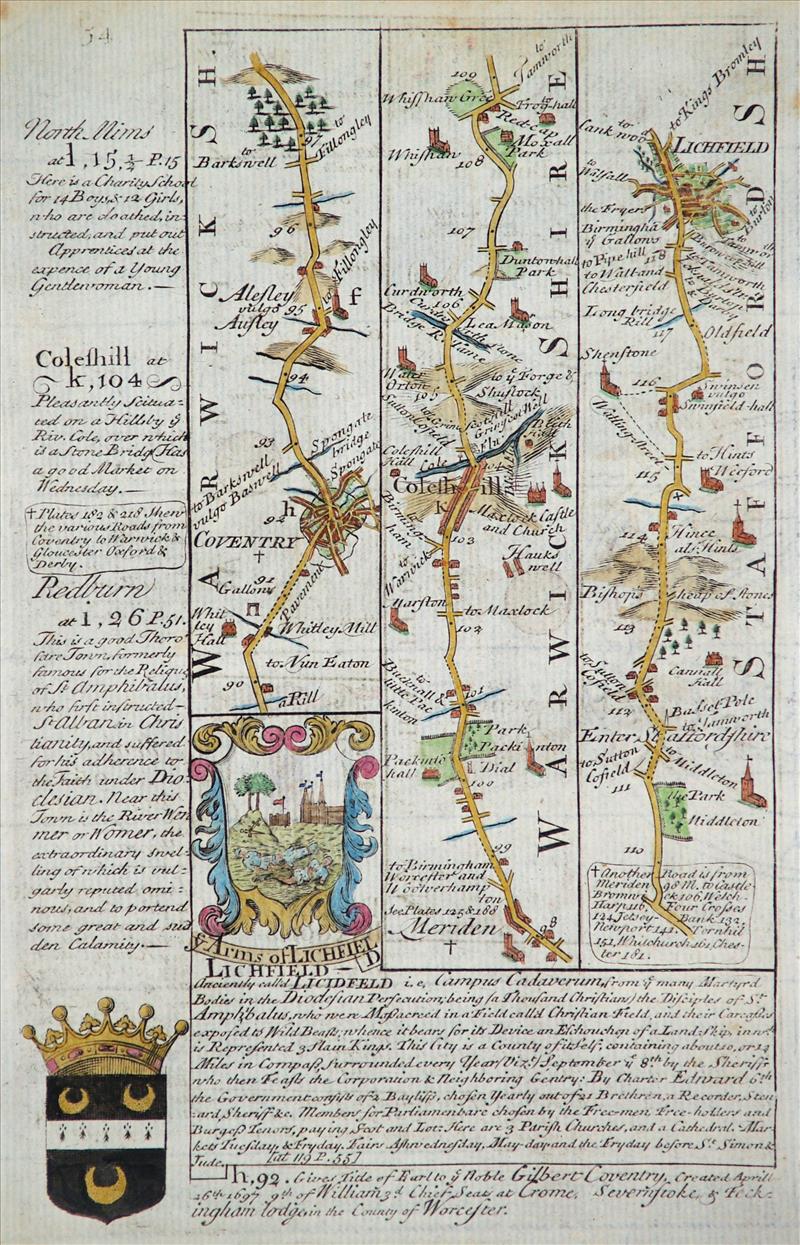 54
North Mims
at l, 15, ½ P. 15
Here is a Charity School
for 14 Boys, & 12 Girls,
who are cloathed, in-
structed, and put out
Apprentices at the
expence of a Young
Gentlewoman. —
Coleshill at
k, 104
Pleasantly Scitua-
ted on a Hill by ẙ
Riv. Cole, over which
is a Stone Bridg Has
a good Market on
Wednesday. —
† Plates 182 & 218 Shew
the various Roads from
Coventry to Warwick &
Gloucester Oxford &
Derby.
Redburn
at i, 26 P. 51.
This is a good Thoro
fare Town, formerly
famous for the Reliqus
of St. Amphibalus,
who first instructed
St. Alban in Chris
tianity, and suffered
for his adherence to
the Faith under Dio-
clesian. Near this
Town is the River Wen
mer or Womer, the
extraordinary swel-
ling of which is vul-
garly reputed omi-
nous, and to portend
some great and sud
den Calamity. —
WARWICKSH.
97
to Fillongley
to Barkswell
96
to Fillongley
Alesley
vulgo 95
Ausley
f
94
93
Spongate
bridge
Spongate
to Barkswell
vulgo Baswell
h
92
COVENTRY
†
91
Gallows
Pavement
Whit
ley
Hall
Whitley Mill
to Nun Eaton
90
a Rill
ẙ Arms of LICHFIELD
WARWICKSHIRE
to Tamworth
109
Whisshaw Gree
Frog hall
Red Cap
Moxall
Park
Whishaw
108
107
Duntonhall
Park
Curdworth
106
Curdworth
Bridge R. Tame
Lea Mason
Water
Orton
105
to ẙ Forge &
Shustock
Coleshill
Hall
Cole
Blith
hall
Coleshill
K
Maxlock Castle
and Church
103
Hauks
well
to Warwick
Marston
to Maxlock
102
to
Bucknall &
little Pac
kinton
101
Park
Packinton
Packinto
hall
Dial
100
99
to Birmingham
Worcester and
Woolverhamp
ton
See Plates 125 & 188
Meriden
†
98
STAFFORDSH
to Kings Bromley
to
Cankwood
LICHFIELD
to
Walsall
to
Burton
the Fryers
Birmingha
ẙ Gallows
to Pipe hill 118
to Wall and
Chesterfield
Long bridge
Rill
117
Oldfield
Shenstone
116
Swinsen
vulgo
Swinfield-hall
Watling Street
to Hints
115
Weeford
114
Hince
als. Hints
Bishops heap of Stones
113
Canwall
Hall
to Sutton
Cofield
112
Basset Pole
to Tamworth
Enter Staffordshire
to Sutton
Cofield
to
Middleton
111
the Park
Middleton
110
† Another Road is from
Meriden 98 M. to Castle
Bromw ck 106, Welch
Harp 116 Four Crosses
124 Jelsey Bank 132
Newport 141, Ternhil
151, Whitchurch 161, Ches-
ter 181.
LICHFIELD —
Anciently call'd LICIDFELD i.e. Campus Cadaverum, from ẙ many Martyrd
Bodies in the Dioclesian Persecution; being (a Thousand Christians) the Disciples of St.
Amphibalus, who were Massacred in a Field calld Christian Field, and their Carcasses
exposed to Wild Beasts; whence it bears for its Device an Eschucheon of a Landskip, in wch.
is Represented 3 Slain Kings. This City is a County of it self, containing about 10, or 12
Miles in Compass, Surrounded every Year (Vizt.) September ẙ 8th. by the Sheriff
who then Feasts the Corporation & Neighboring Gentry: By Charter Edward 6th
the Government consists of 2 Bayliffs, chosen Yearly out of 21 Brethren, a Recorder, Stew
ard, Sheriff &c. Members for Parliament are chosen by the Free-men, Free-holders and
Burgess Tenors, paying Scot and Lot: Here are 3 Parish Churches, and a Cathedral. Mar-
kets Tuesday & Fryday. Fairs Ashwednesday, May-day and the Fryday before St. Simon &
Jude. [at 119 P. 55]
h, 92. Gives Title of Earl to ẙ Noble Gilbert Coventry, Created Aprill
26th. 1697 9th. of William 3d. Chief Seats at Crome, Severnstoke, & Feck-
ingham lodge, in the County of Worcester.